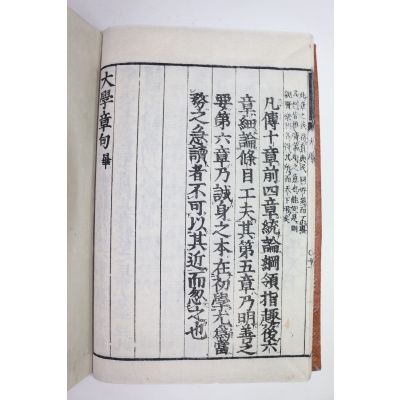 大學
凡傳十章前四章統論綱領指趣後六
章細論條目工夫其第五章乃明善之
要第六章乃誠身之本在初學尤爲當
務之急讀者不可以其近而忽之也
大學章句 畢